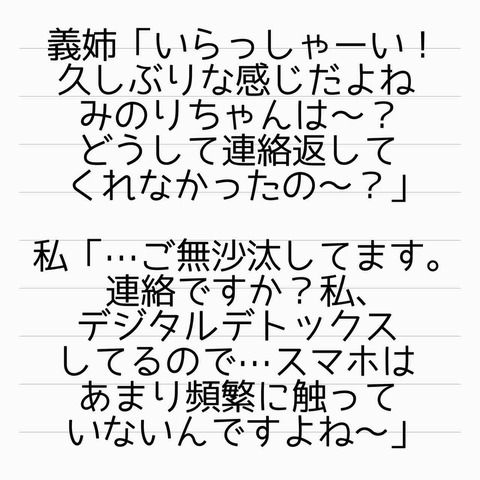 義姉「いらっしゃーい！
久しぶりな感じだよね
みのりちゃんは〜？
どうして連絡返して
くれなかったの〜？」
私「…ご無沙汰してます。
連絡ですか？私、
デジタルデトックス
してるので…スマホは
あまり頻繁に触って
いないんですよね〜」